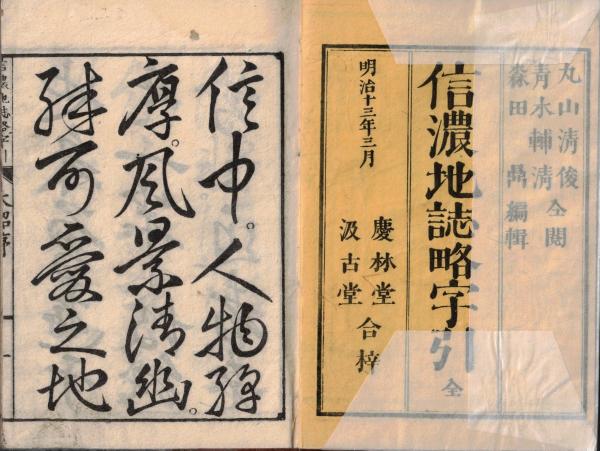 丸山清俊
青木輔清 仝閲
森田 𣂰編輯
信濃地誌略字引 全
明治十三年三月
慶林堂
汲古堂 合梓
信中。人物淳
厚。风景清幽。
殊可愛之地
信濃地誌略字引